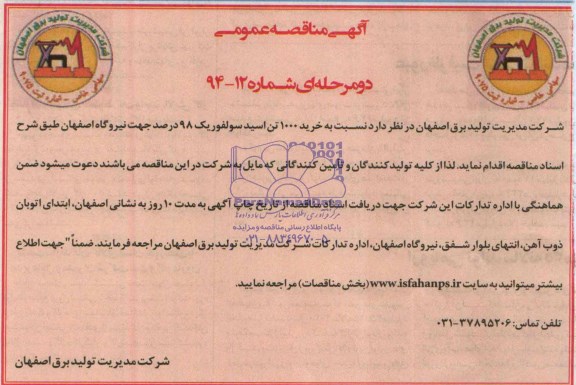 آگهی مناقصه عمومی
دو مرحله‌ای شماره ۱۲-۹۴
شرکت مدیریت تولید برق اصفهان
سهامی خاص - شماره ثبت ۱۰۷۵
شرکت مدیریت تولید برق اصفهان
سهامی خاص - شماره ثبت ۱۰۷۵
شرکت مدیریت تولید برق اصفهان در نظر دارد نسبت به خرید ۱۰۰۰ تن اسید سولفوریک ۹۸ درصد جهت نیروگاه اصفهان طبق شرح
اسناد مناقصه اقدام نماید. لذا از کلیه تولیدکنندگان و تأمین کنندگانی که مایل به شرکت در این مناقصه می باشند دعوت میشود ضمن
هماهنگی با اداره تدارکات این شرکت جهت دریافت اسناد مناقصه از تاریخ چاپ آگهی به مدت ۱۰ روز به نشانی اصفهان، ابتدای اتوبان
ذوب آهن، انتهای بلوار شفق، نیروگاه اصفهان، اداره تدارکات شرکت مدیریت تولید برق اصفهان مراجعه فرمایند. ضمناً "جهت اطلاع
بیشتر میتوانید به سایت www.isfahanps.ir (بخش مناقصات) مراجعه نمایید.
تلفن تماس: ۳۷۸۹۵۲۰۶-۰۳۱
شرکت مدیریت تولید برق اصفهان
پایگاه اطلاع رسانی مناقصه و مزایده
۰۲۱-۸۸۳۴۹۶۷۰-۵